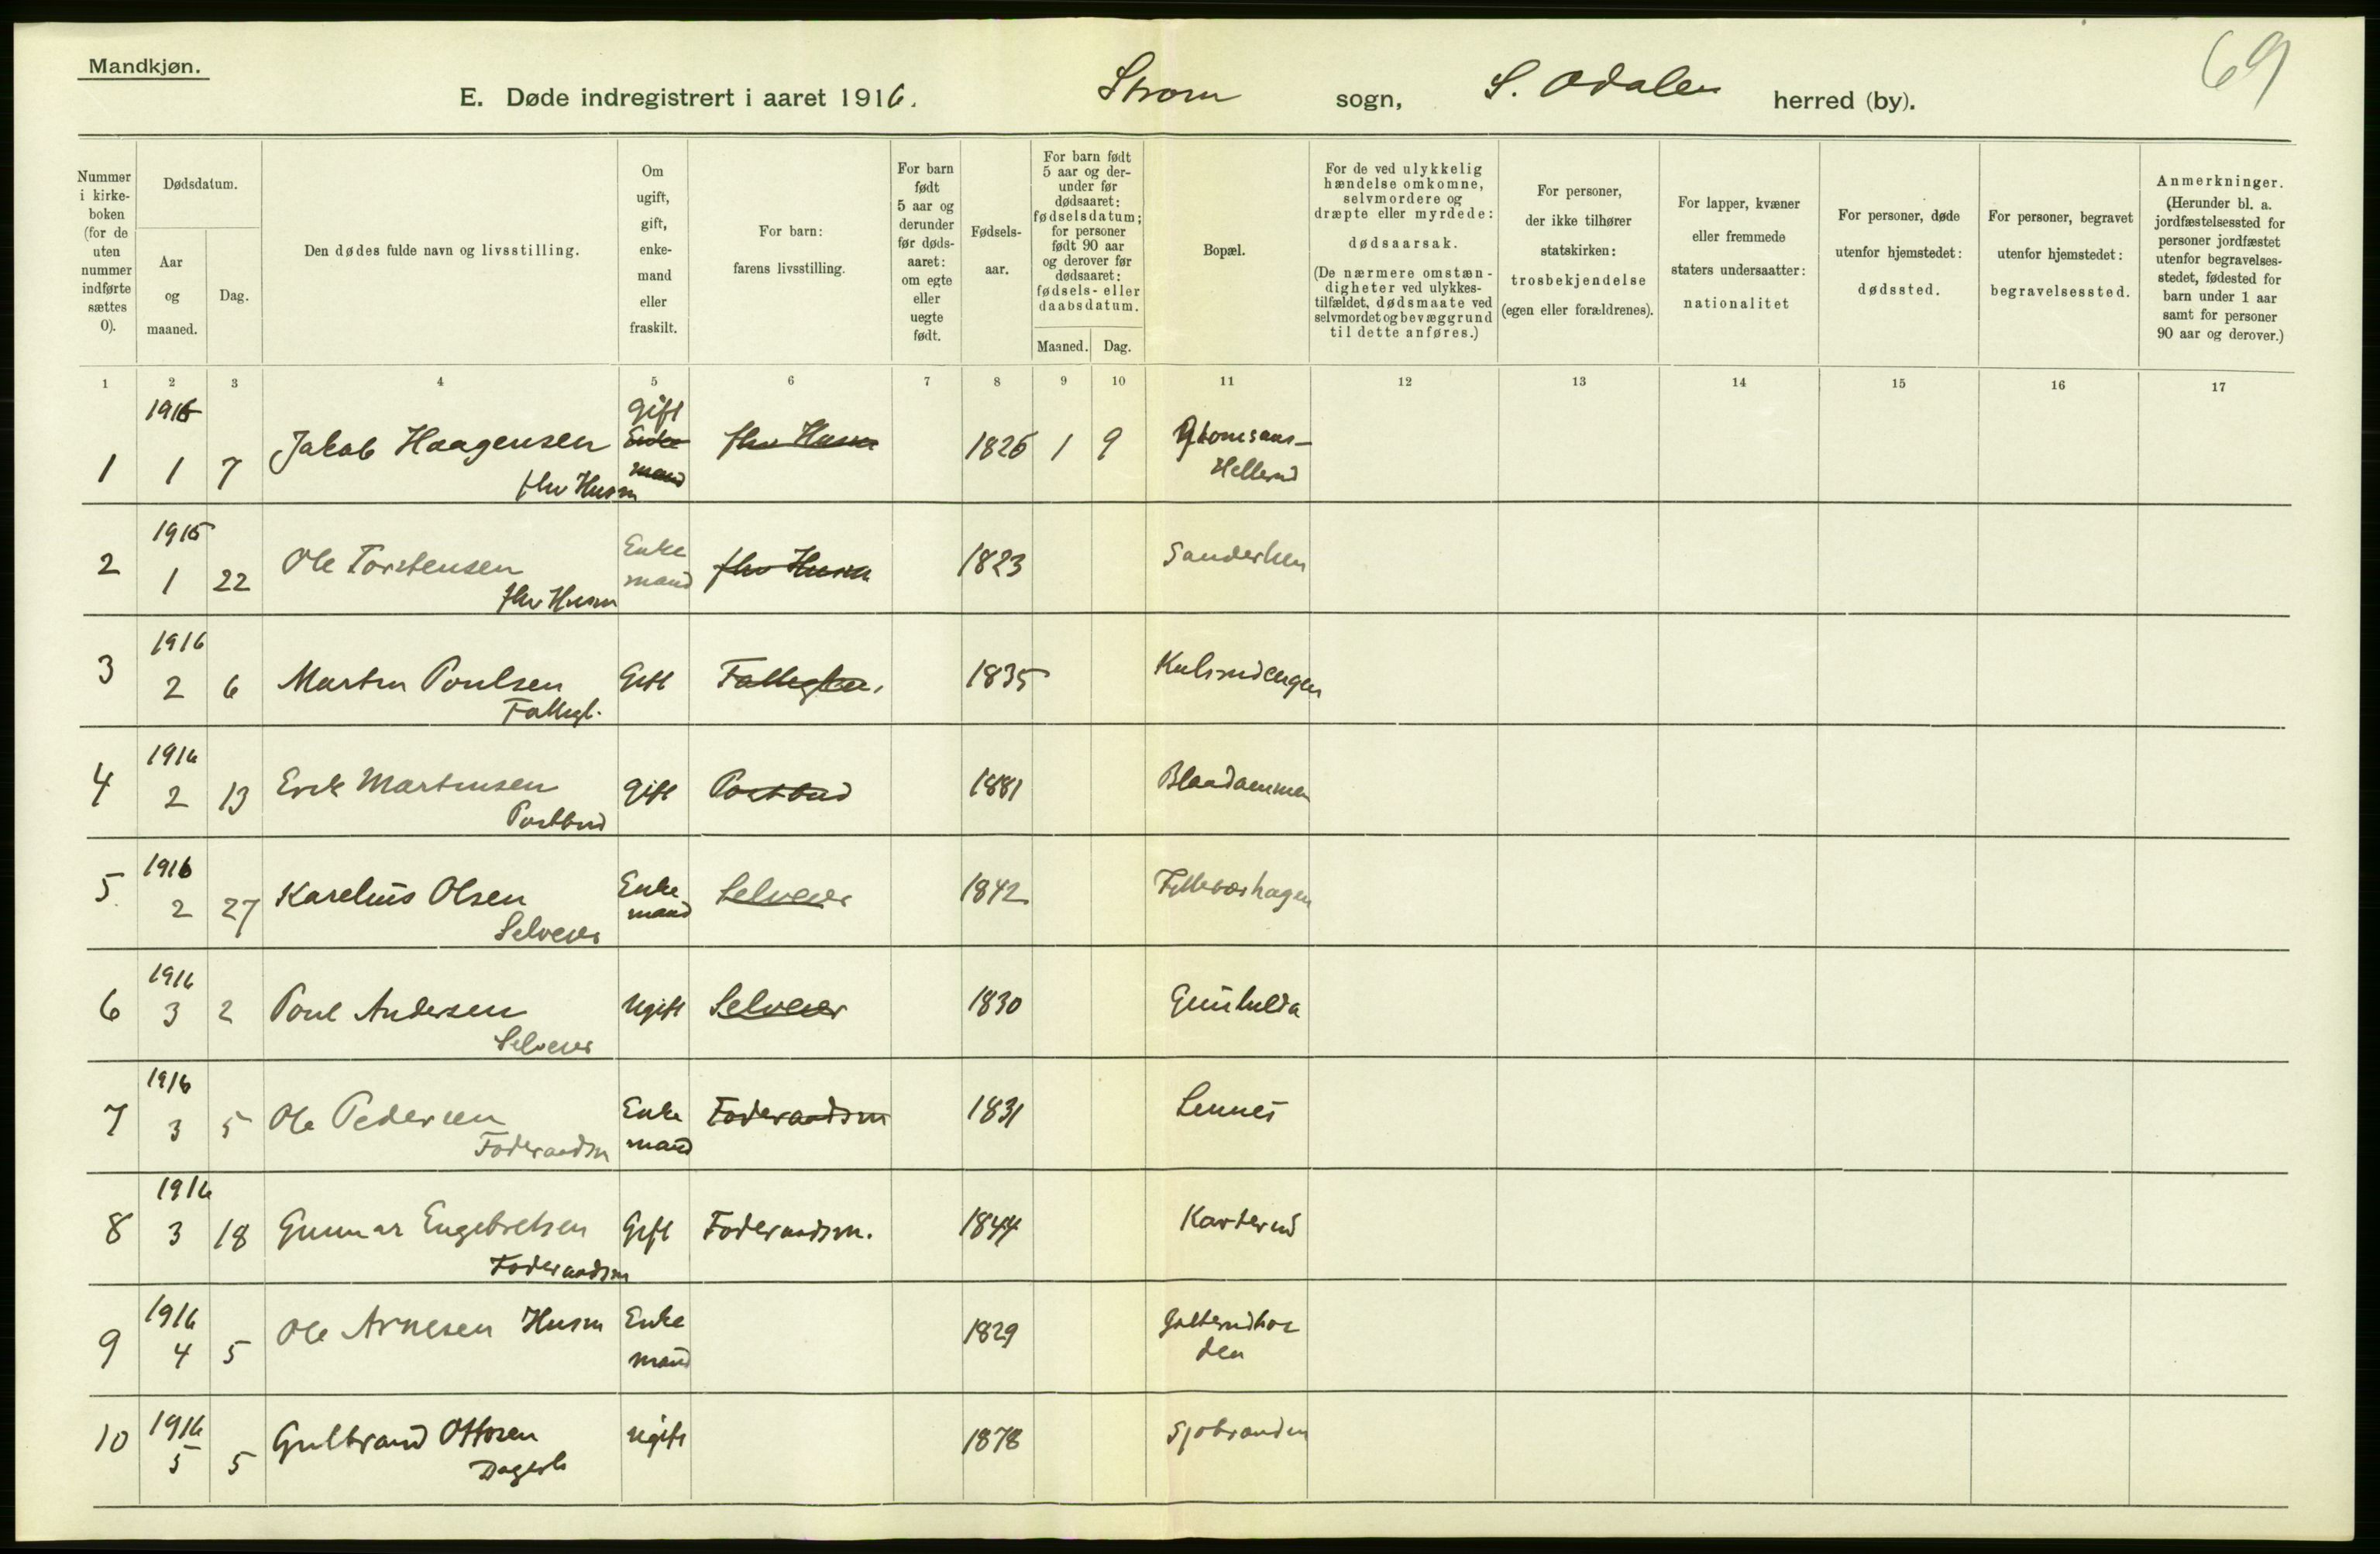 Mandkjøn.
69
E. Døde indregistrert i aaret 1916. Strøm sogn, S. Odalen herred (by).
Nummer i kirkeboken (for de uten nummer indførte sættes 0).
Dødsdatum.
Aar og maaned.
Dag.
Den dødes fulde navn og livsstilling.
Om ugift, gift, enkemand eller fraskilt.
For barn: farens livsstilling.
For barn født 5 aar og derunder før dødsaaret: om egte eller uegte født.
Fødselsaar.
For barn født 5 aar og derunder før dødsaaret: fødselsdatum; for personer født 90 aar og derover før dødsaaret: fødsels- eller daabsdatum.
Maaned.
Dag.
Bopæl.
For de ved ulykkelig hændelse omkomne, selvmordere og dræpte eller myrdede: dødsaarsak.
(De nærmere omstændigheter ved ulykkestilfældet, dødsmaate ved selvmordet og bevæggrund til dette anføres.)
For personer, der ikke tilhører statskirken: trosbekjendelse (egen eller forældrenes).
For lapper, kvæner eller fremmede staters undersaatter: nationalitet
For personer, døde utenfor hjemstedet: dødssted.
For personer, begravet utenfor hjemstedet: begravelsessted.
Anmerkninger. (Herunder bl. a. jordfæstelsessted for personer jordfæstet utenfor begravelsesstedet, fødested for barn under 1 aar samt for personer 90 aar og derover.)
1 2 3 4 5 6 7 8 9 10 11 12 13 14 15 16 17
1 1916 1 7 Jakob Haagensen fhv Husm gift Enkemand fhv Husm 1826 1 9 Hellerud
2 1916 1 22 Ole Torstensen fhv Husm Enkemand fhv Husm 1823
3 1916 2 6 Martin Poulsen Fattigl. Gift 1835
4 1916 2 13 Erik Martinsen Postbud gift Postbud 1881 Blaadammen
5 1916 2 27 Karelius Olsen Selveier Enkemand Selveier 1842
6 1916 3 2 Poul Andersen Selveier Ugift Selveier 1830
7 1916 3 5 Ole Pedersen Føderaadsm Enkemand Føderaadsm 1831
8 1916 3 18 Gunnar Engebretsen Føderaadsm Gift Føderaadsm. 1844 Karterud
9 1916 4 5 Ole Arnesen Husm Enkemand 1829
10 1916 5 5 Gulbrand Ottosen Dagarb Ugift 1878